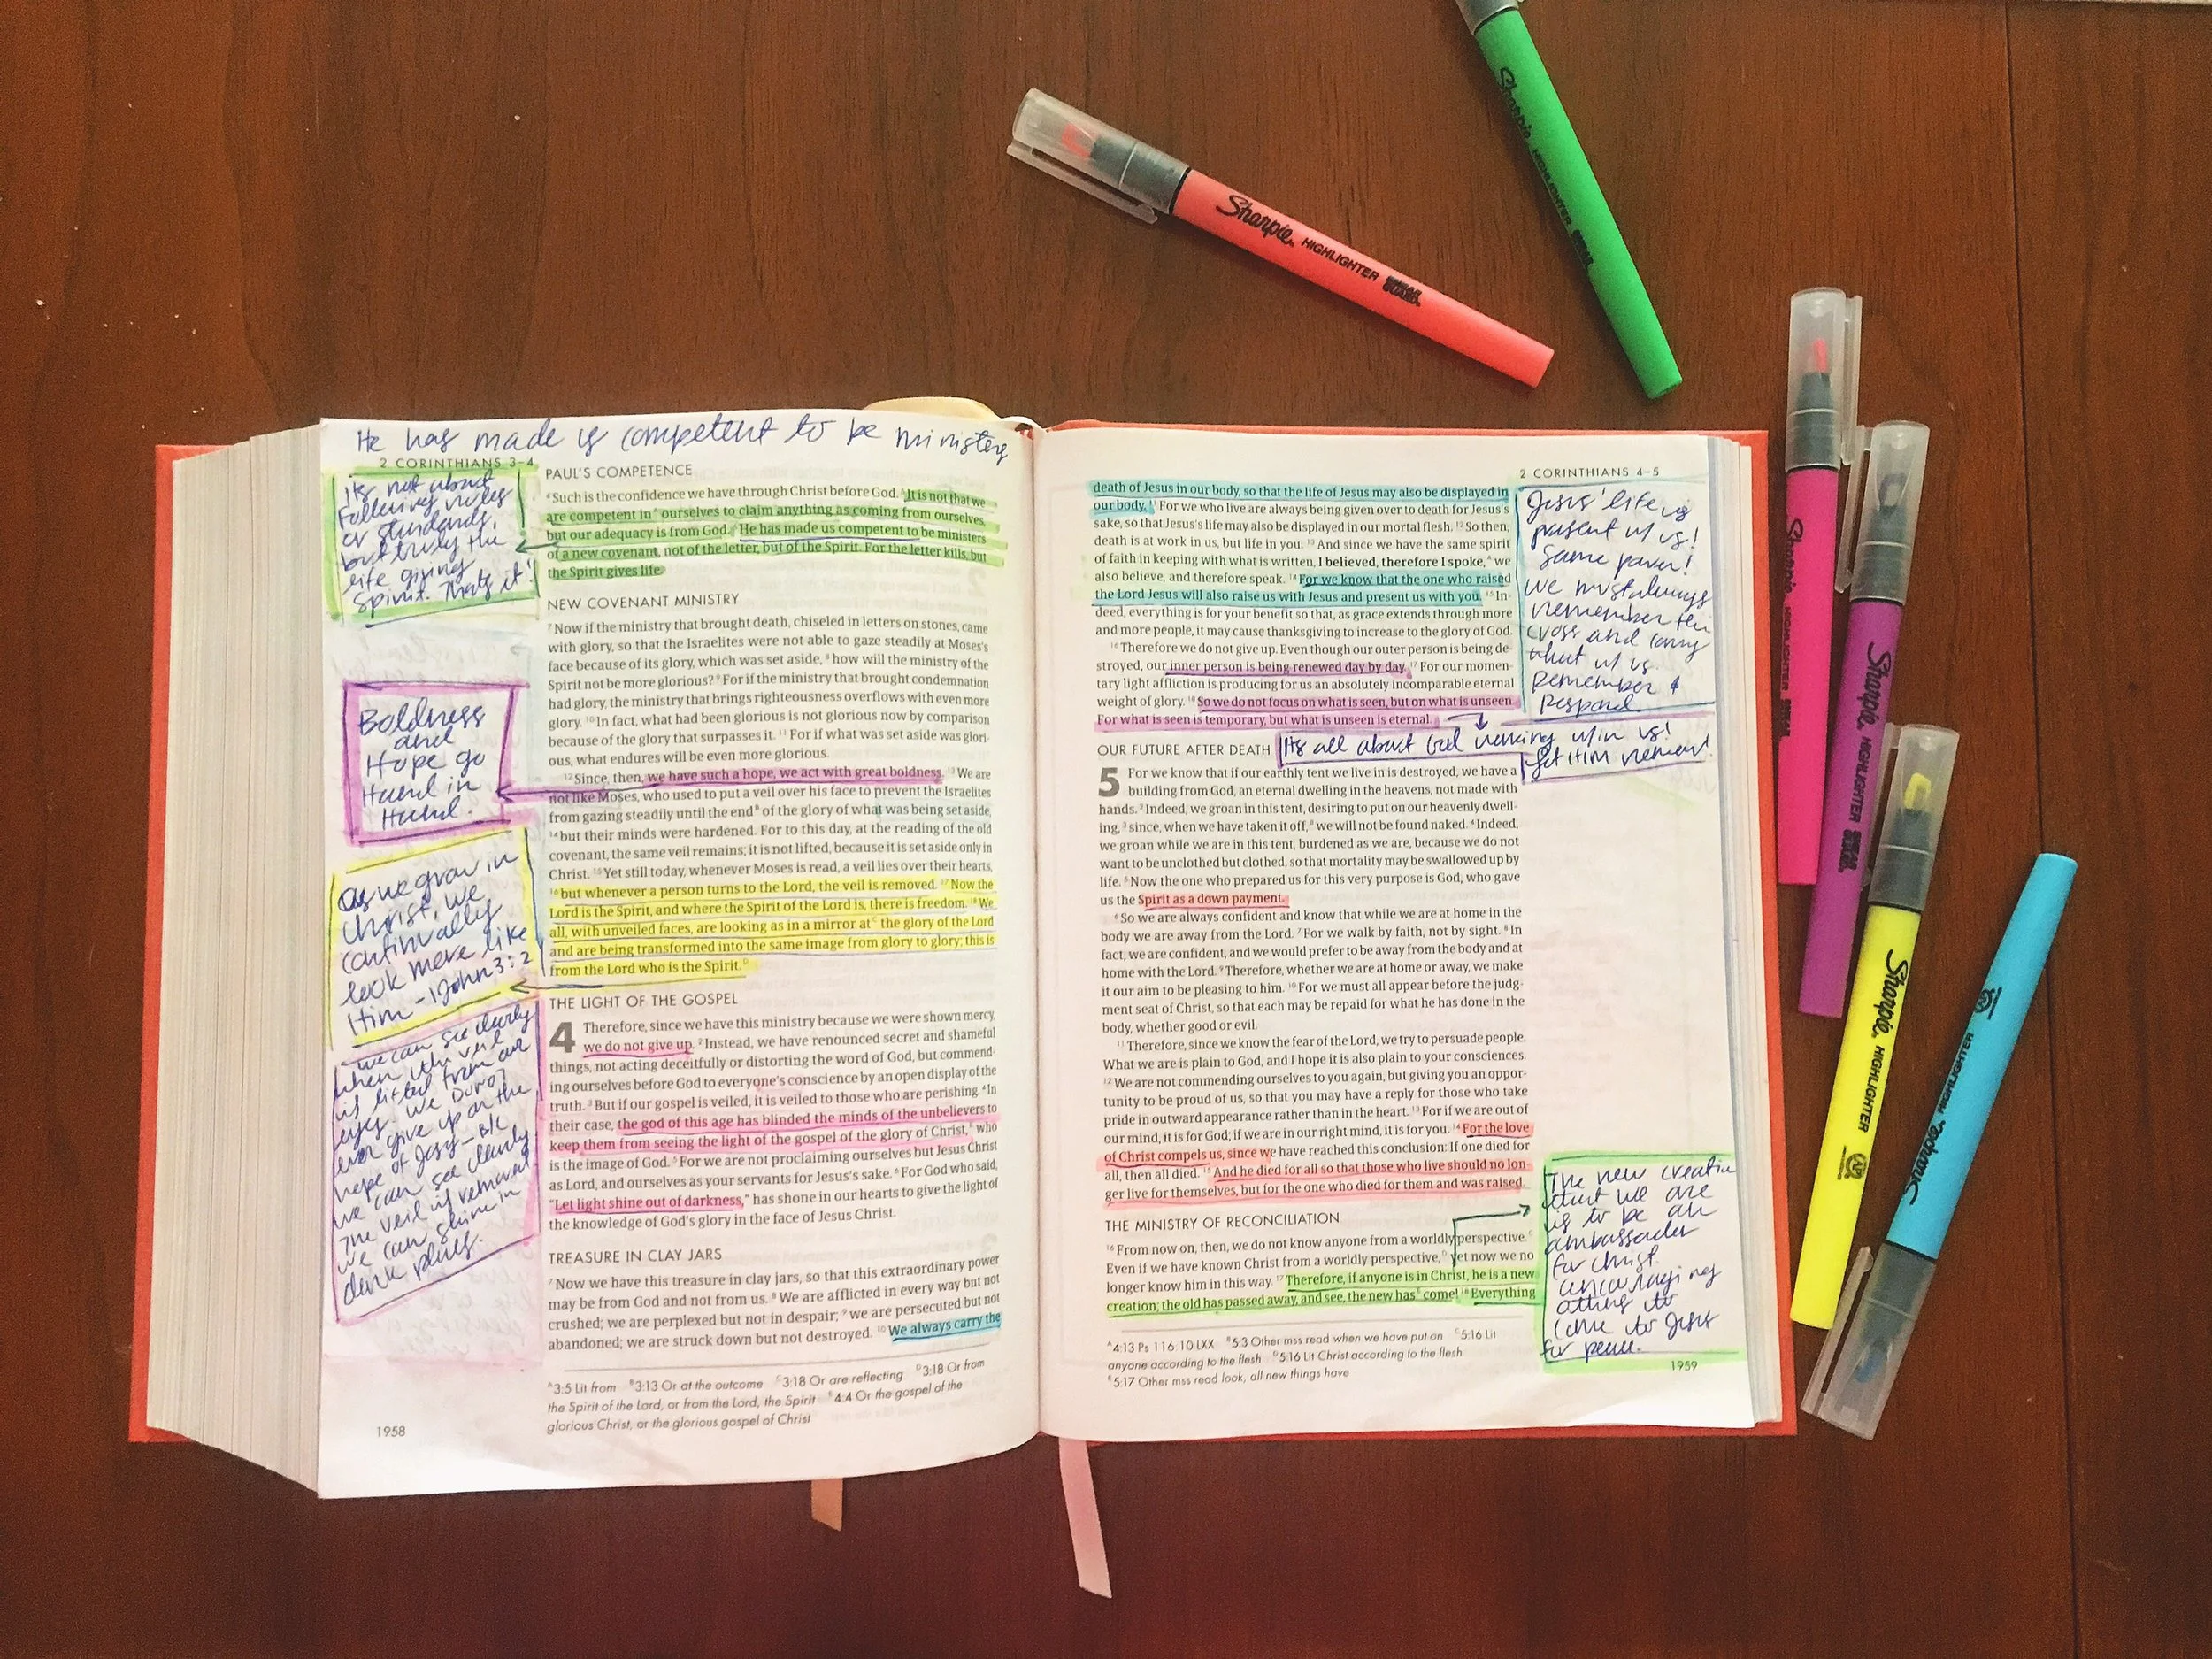 He has made us competent to be ministers
2 CORINTHIANS 3–4
Its not about
following rules
or standards,
but truly the
life giving
Spirit. Thats it!
Boldness
and
Hope go
Hand in
Hand.
As we grow in
Christ, we
continually
look more like
Him -1John 3:2
we can see clearly
when the veil
is lifted from our
eyes. We DONOT
ever give up on the
hope of Jesus - B/C
we can see clearly
The veil is removed
we can shine in
dark places.
PAUL'S COMPETENCE
4 Such is the confidence we have through Christ before God. 5 It is not that we
are competent in A ourselves to claim anything as coming from ourselves,
but our adequacy is from God. 6 He has made us competent to be ministers
of a new covenant, not of the letter, but of the Spirit. For the letter kills, but
the Spirit gives life.
NEW COVENANT MINISTRY
7 Now if the ministry that brought death, chiseled in letters on stones, came
with glory, so that the Israelites were not able to gaze steadily at Moses's
face because of its glory, which was set aside, 8 how will the ministry of the
Spirit not be more glorious? 9 For if the ministry that brought condemnation
had glory, the ministry that brings righteousness overflows with even more
glory. 10 In fact, what had been glorious is not glorious now by comparison
because of the glory that surpasses it. 11 For if what was set aside was glori-
ous, what endures will be even more glorious.
12 Since, then, we have such a hope, we act with great boldness. 13 We are
not like Moses, who used to put a veil over his face to prevent the Israelites
from gazing steadily until the end B of the glory of what was being set aside,
14 but their minds were hardened. For to this day, at the reading of the old
covenant, the same veil remains; it is not lifted, because it is set aside only in
Christ. 15 Yet still today, whenever Moses is read, a veil lies over their hearts,
16 but whenever a person turns to the Lord, the veil is removed. 17 Now the
Lord is the Spirit, and where the Spirit of the Lord is, there is freedom. 18 We
all, with unveiled faces, are looking as in a mirror at C the glory of the Lord
and are being transformed into the same image from glory to glory; this is
from the Lord who is the Spirit. D
THE LIGHT OF THE GOSPEL
4 Therefore, since we have this ministry because we were shown mercy,
we do not give up. 2 Instead, we have renounced secret and shameful
things, not acting deceitfully or distorting the word of God, but commend-
ing ourselves before God to everyone's conscience by an open display of the
truth. 3 But if our gospel is veiled, it is veiled to those who are perishing. 4 In
their case, the god of this age has blinded the minds of the unbelievers to
keep them from seeing the light of the gospel of the glory of Christ, E who
is the image of God. 5 For we are not proclaiming ourselves but Jesus Christ
as Lord, and ourselves as your servants for Jesus's sake. 6 For God who said,
"Let light shine out of darkness," has shone in our hearts to give the light of
the knowledge of God's glory in the face of Jesus Christ.
TREASURE IN CLAY JARS
7 Now we have this treasure in clay jars, so that this extraordinary power
may be from God and not from us. 8 We are afflicted in every way but not
crushed; we are perplexed but not in despair; 9 we are persecuted but not
abandoned; we are struck down but not destroyed. 10 We always carry the
A 3:5 Lit from B 3:13 Or at the outcome C 3:18 Or are reflecting D 3:18 Or from
the Spirit of the Lord, or from the Lord, the Spirit E 4:4 Or the gospel of the
glorious Christ, or the glorious gospel of Christ
1958
2 CORINTHIANS 4–5
death of Jesus in our body, so that the life of Jesus may also be displayed in
our body. 11 For we who live are always being given over to death for Jesus's
sake, so that Jesus's life may also be displayed in our mortal flesh. 12 So then,
death is at work in us, but life in you. 13 And since we have the same spirit
of faith in keeping with what is written, I believed, therefore I spoke, A we
also believe, and therefore speak. 14 For we know that the one who raised
the Lord Jesus will also raise us with Jesus and present us with you. 15 In-
deed, everything is for your benefit so that, as grace extends through more
and more people, it may cause thanksgiving to increase to the glory of God.
16 Therefore we do not give up. Even though our outer person is being de-
stroyed, our inner person is being renewed day by day. 17 For our momen-
tary light affliction is producing for us an absolutely incomparable eternal
weight of glory. 18 So we do not focus on what is seen, but on what is unseen.
For what is seen is temporary, but what is unseen is eternal.
OUR FUTURE AFTER DEATH
5 For we know that if our earthly tent we live in is destroyed, we have a
building from God, an eternal dwelling in the heavens, not made with
hands. 2 Indeed, we groan in this tent, desiring to put on our heavenly dwell-
ing, 3 since, when we have taken it off, B we will not be found naked. 4 Indeed,
we groan while we are in this tent, burdened as we are, because we do not
want to be unclothed but clothed, so that mortality may be swallowed up by
life. 5 Now the one who prepared us for this very purpose is God, who gave
us the Spirit as a down payment.
6 So we are always confident and know that while we are at home in the
body we are away from the Lord. 7 For we walk by faith, not by sight. 8 In
fact, we are confident, and we would prefer to be away from the body and at
home with the Lord. 9 Therefore, whether we are at home or away, we make
it our aim to be pleasing to him. 10 For we must all appear before the judg-
ment seat of Christ, so that each may be repaid for what he has done in the
body, whether good or evil.
11 Therefore, since we know the fear of the Lord, we try to persuade people.
What we are is plain to God, and I hope it is also plain to your consciences.
12 We are not commending ourselves to you again, but giving you an oppor-
tunity to be proud of us, so that you may have a reply for those who take
pride in outward appearance rather than in the heart. 13 For if we are out of
our mind, it is for God; if we are in our right mind, it is for you. 14 For the love
of Christ compels us, since we have reached this conclusion: If one died for
all, then all died. 15 And he died for all so that those who live should no lon-
ger live for themselves, but for the one who died for them and was raised.
THE MINISTRY OF RECONCILIATION
16 From now on, then, we do not know anyone from a worldly perspective. C
Even if we have known Christ from a worldly perspective, D yet now we no
longer know him in this way. 17 Therefore, if anyone is in Christ, he is a new
creation; the old has passed away, and see, the new has E come! 18 Everything
A 4:13 Ps 116:10 LXX B 5:3 Other mss read when we have put on C 5:16 Lit
anyone according to the flesh D 5:16 Lit Christ according to the flesh
E 5:17 Other mss read look, all new things have
Jesus' life is
present w/ us!
Same power!
We must always
remember the
cross and carry
that w/ us.
Remember &
Respond
Its all about God working w/in us!
Let Him renew!
The new creation
that we are
is to be an
ambassador
for Christ.
encouraging
others to
come to Jesus
for peace.
1959
Sharpie HIGHLIGHTER SMEAR GUARD
Sharpie HIGHLIGHTER SMEAR GUARD
Sharpie HIGHLIGHTER
Sharpie HIGHLIGHTER SMEAR GUARD
Sharpie HIGHLIGHTER AP
Sharpie HIGHLIGHTER